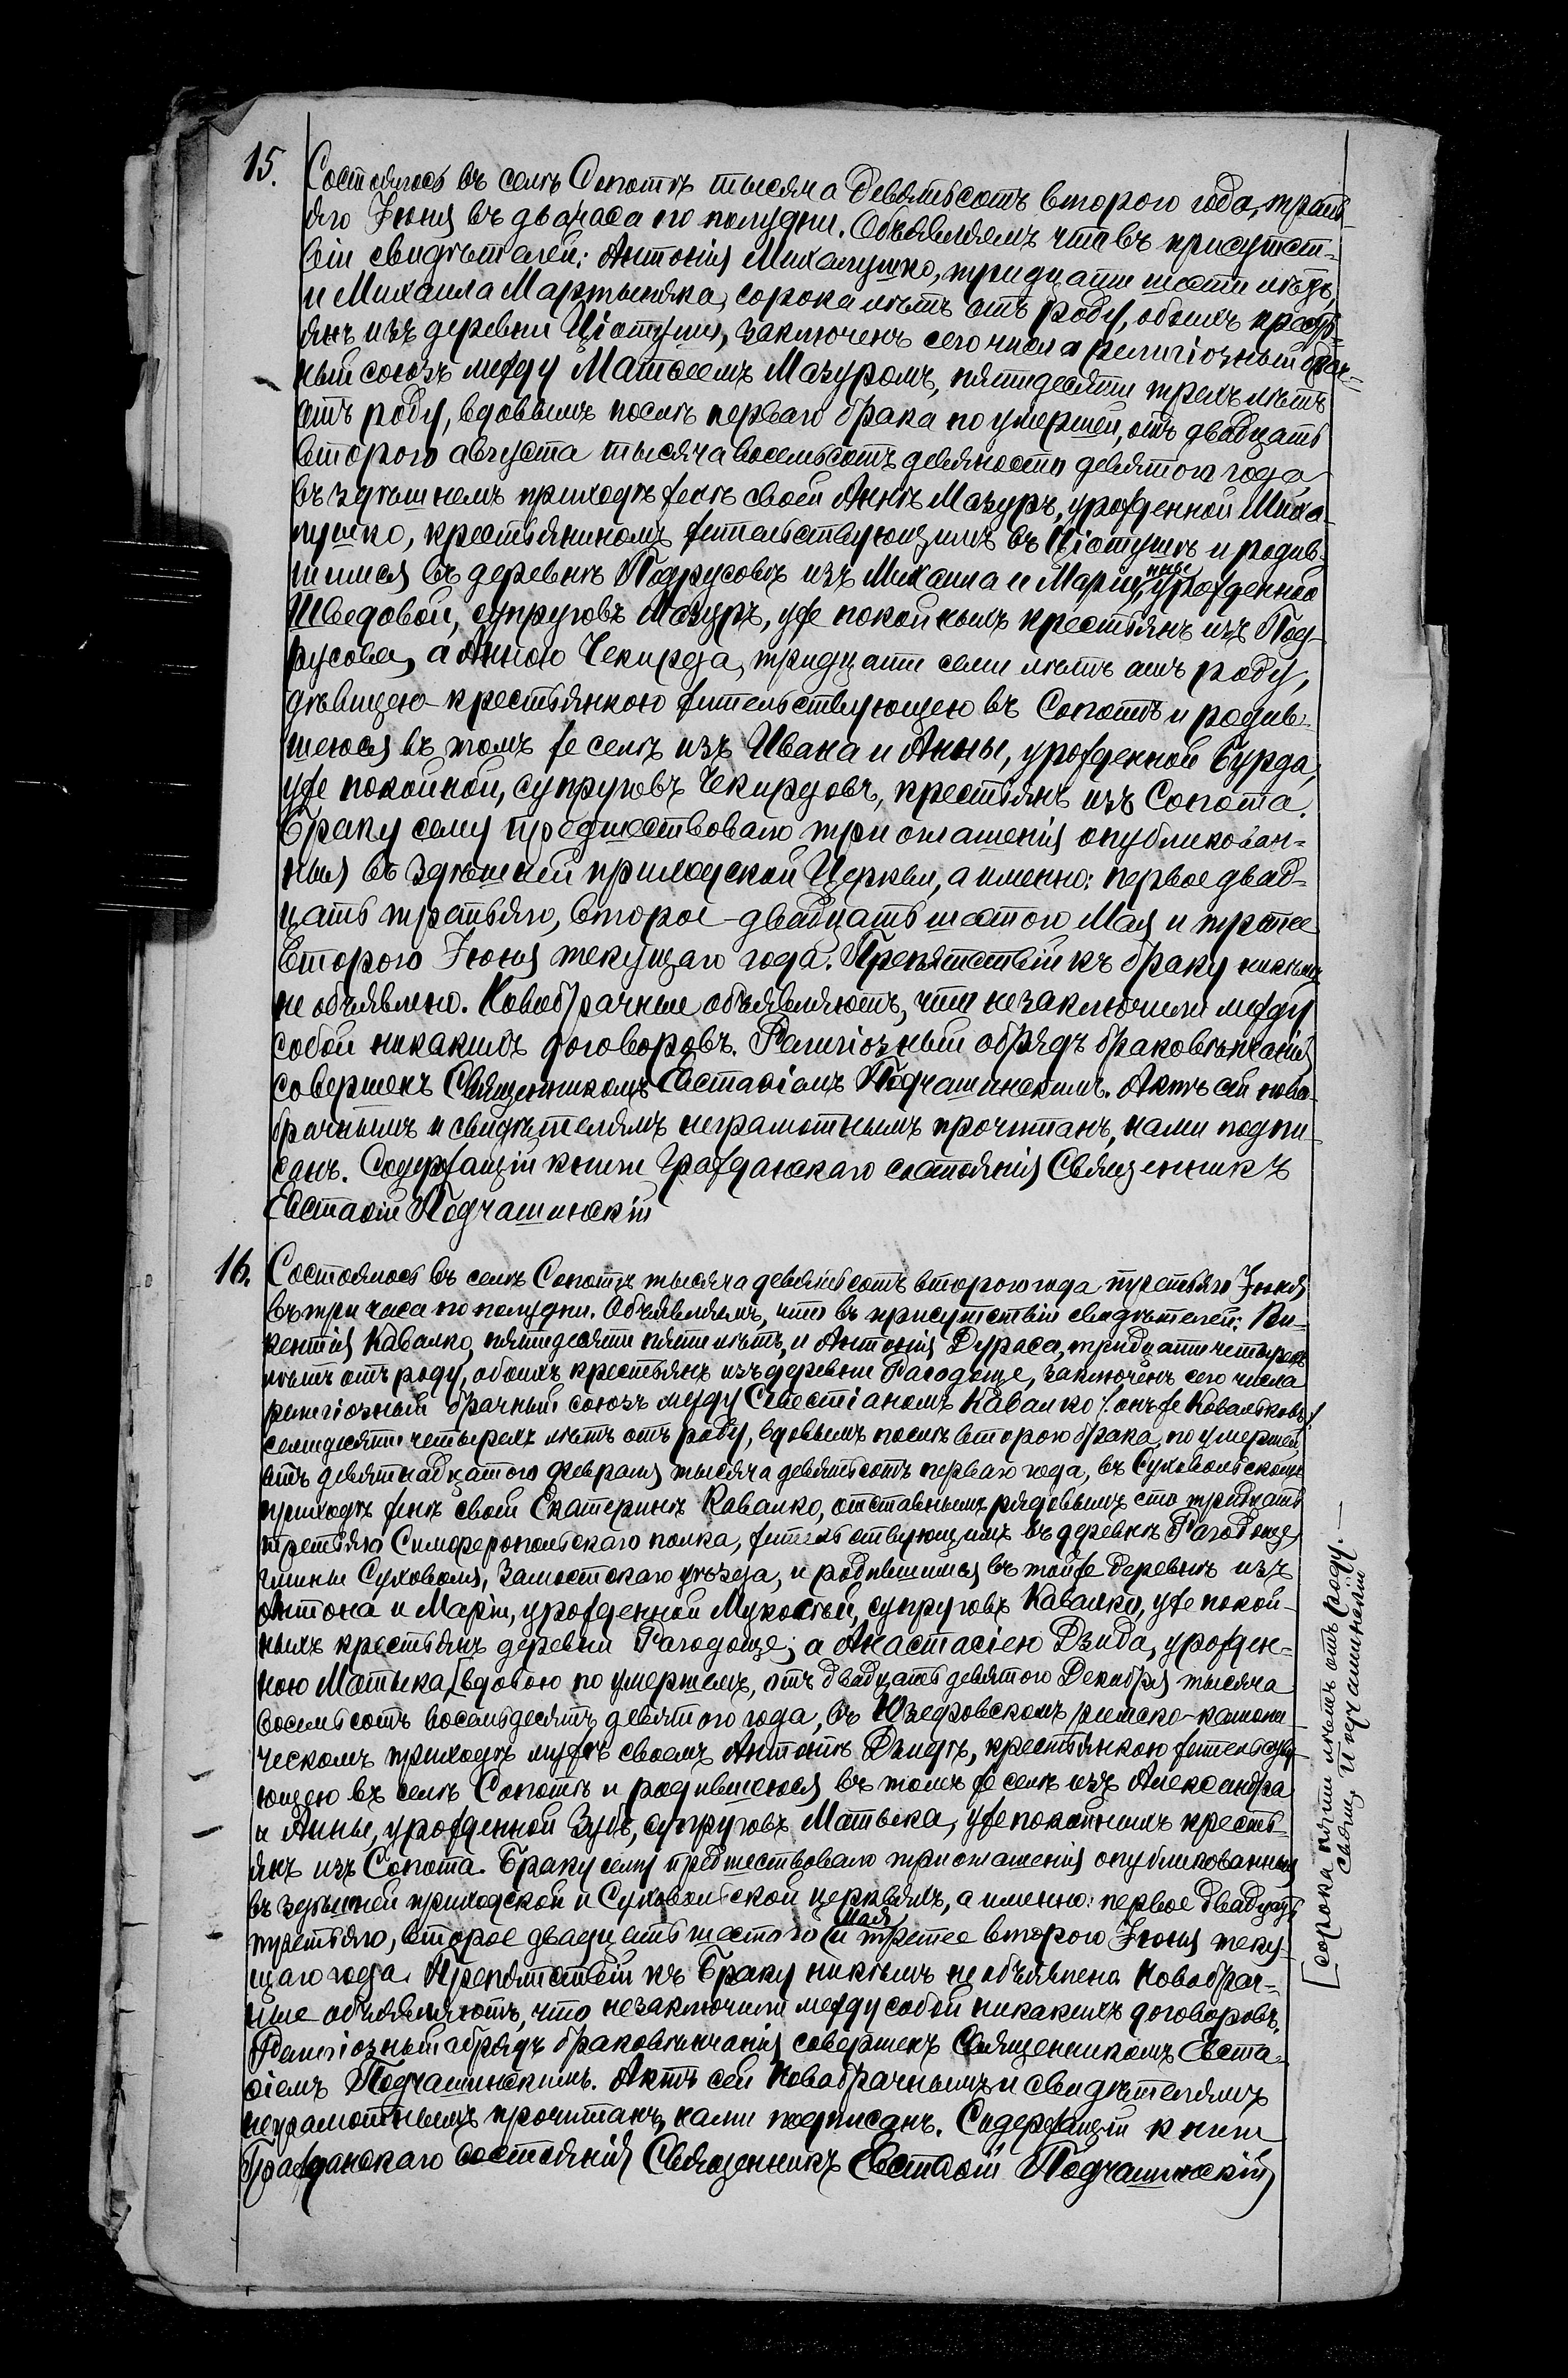 15. Состоялось въ селѣ Сопотѣ тысяча девятьсотъ второго года, треть-
яго Іюня въ два часа по полудни. Объявляемъ что въ присутст-
віи свидѣтелей: Антонія Михалушко, тридцати шести лѣтъ,
и Михаила Мартыняка, сорока лѣтъ отъ роду, обоихъ кресть-
янъ изъ деревни Ціотуши, заключенъ сего числа религіозный брач-
ный союзъ между Матѳеемъ Мазуромъ, пятидесяти трехъ лѣтъ
отъ роду, вдовымъ послѣ перваго брака по умершей, отъ двадцать
второго августа тысяча восемьсотъ девяносто девятого года
въ здѣшнемъ приходѣ женѣ своей Аннѣ Мазуръ, урожденной Миха-
лушко, крестьяниномъ жительствующимъ въ Ціотушѣ и родив-
шимся въ деревнѣ Подрусовѣ изъ Михаила и Маріанны, урожденной
Шведовой, супруговъ Мазуръ, уже покойныхъ крестьянъ изъ Под-
русова, а Анною Чекирда, тридцати семи лѣтъ отъ роду,
дѣвицею крестьянкою жительствующею въ Сопотѣ и родив-
шеюся въ томъ же селѣ изъ Ивана и Анны, урожденной Бурда,
уже покойной, супруговъ Чекирдовъ, крестьянъ изъ Сопота.
Браку сему предшествовало три оглашенія опубликован-
ныя въ здѣшней приходской Церкви, а именно: первое двад-
цать третьяго, второе двадцать шестого Мая и третее
второго Іюня текущаго года. Препятствій къ браку никѣмъ
не объявлено. Новобрачные объявляютъ, что незаключили между
собой никакихъ договоровъ. Религіозный обрядъ браковѣнчанія
совершенъ Священникомъ Евстаѳіемъ Подчашинскимъ. Актъ сей ново-
брачнымъ и свидѣтелямъ неграмотнымъ прочитанъ, нами подпи-
санъ. Содержащій книги Гражданскаго состоянія Священникъ
Евстаѳій Подчашинскій
16. Состоялось въ селѣ Сопотѣ тысяча девятьсотъ второго года третьяго Іюня
въ три часа по полудни. Объявляемъ, что въ присутствіи свидѣтелей: Ви-
кентія Кавалко, пятидесяти пяти лѣтъ, и Антонія Дураса, тридцати четырехъ
лѣтъ отъ роду, обоихъ крестьянъ изъ деревни Рагодоще, заключенъ сего числа
религіозный брачный союзъ между Севестіаномъ Кавалко /: онъ же Ковальковъ :/
семидесяти четырехъ лѣтъ отъ роду, вдовымъ послѣ второго брака, по умершей,
отъ девятнадцатого февраля тысяча девятьсотъ перваго года, въ Суховольскомъ
приходѣ женѣ своей Екатеринѣ Кавалко, отставнымъ рядовымъ сто тридцать
третьяго Симферопольскаго полка, жительствующимъ въ деревнѣ Рагодоще,
гмины Суховоля, Замостскаго уѣзда, и родившимся въ той же деревнѣ изъ
Антона и Маріи, урожденной Мукостьй, супруговъ Кавалко, уже покой-
ныхъ крестьянъ деревни Рагодоще; а Анастасіею Дзида, урожден-
ною Матыка, [вдовою по умершемъ, отъ двадцать девятого Декабря тысяча
восемьсотъ восемьдесятъ девятого года, въ Юзефовскомъ римско-католи-
ческомъ приходѣ мужѣ своемъ Антонѣ Дзидѣ, крестьянкою жительству-
ющею въ селѣ Сопотѣ и родившеюся въ томъ же селѣ изъ Александра
и Анны, урожденной Зубъ, супруговъ Матыка, уже покойныхъ кресть-
янъ изъ Сопота. Браку сему предшествовало три оглашенія опубликованныя
въ здѣшней приходской и Суховольской церквяхъ, а именно: первое двадцать
третьяго, второе двадцать шестого Мая и третее второго Іюня теку-
щаго года. Препятствій къ Браку никѣмъ не объявлено. Новобрач-
ные объявляютъ, что незаключили между собой никакихъ договоровъ.
Религіозный обрядъ браковѣнчанія совершенъ Священникомъ Евста-
ѳіемъ Подчашинскимъ. Актъ сей Новобрачнымъ и свидѣтелямъ
неграмотнымъ прочитанъ, нами подписанъ. Содержащій книги
Гражданскаго состоянія Священникъ Евстаѳій Подчашинскій
[сорока пяти лѣтъ отъ роду. —
Свящ. Подчашинскій